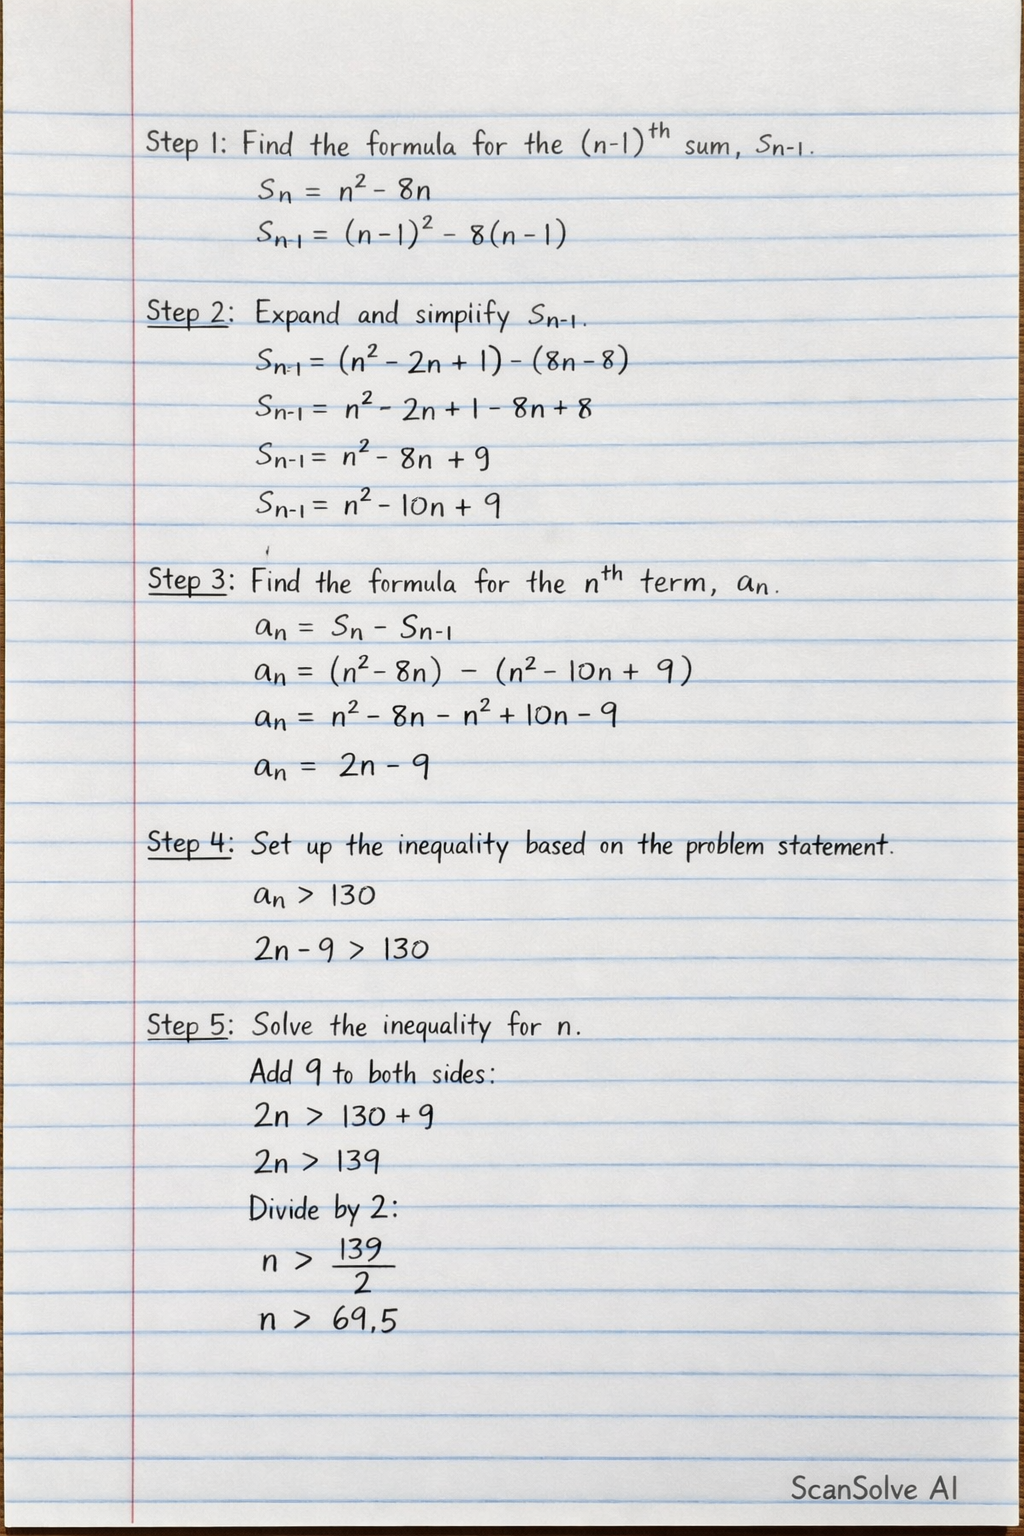 Step 1: Find the formula for the (n-1)^th sum, Sn-1.
Sn = n² - 8n
Sn-1 = (n-1)² - 8(n-1)
Step 2: Expand and simpiify Sn-1.
Sn-1 = (n² - 2n + 1) - (8n-8)
Sn-1 = n² - 2n + 1 - 8n + 8
Sn-1 = n² - 8n + 9
Sn-1 = n² - 10n + 9
Step 3: Find the formula for the n^th term, an.
an = Sn - Sn-1
an = (n² - 8n) - (n² - 10n + 9)
an = n² - 8n - n² + 10n - 9
an = 2n - 9
Step 4: Set up the inequality based on the problem statement.
an > 130
2n - 9 > 130
Step 5: Solve the inequality for n.
Add 9 to both sides:
2n > 130 + 9
2n > 139
Divide by 2:
n > 139/2
n > 69,5
ScanSolve AI